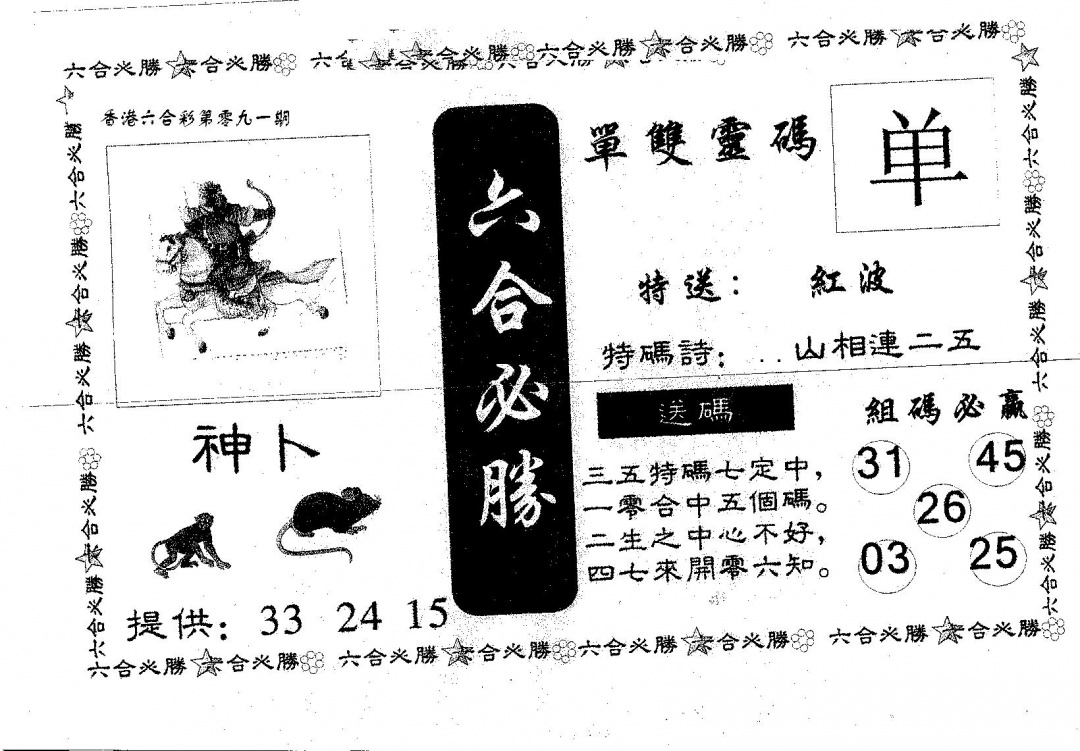 六合必勝 六合必勝 六合必勝 六合必勝 六合必勝 六合必勝
香港六合彩第零九一期
六合必勝
單雙靈碼
单
特送： 紅波
特碼詩：...山相連二五
送碼
三五特碼七定中，
一零合中五個碼。
二生之中心不好，
四七來開零六知。
組碼必贏
31 45
26
03 25
神卜
提供：33 24 15
六合必勝 合必勝 六合必勝 合必勝 六合必勝 合必勝 六合必勝 合必勝